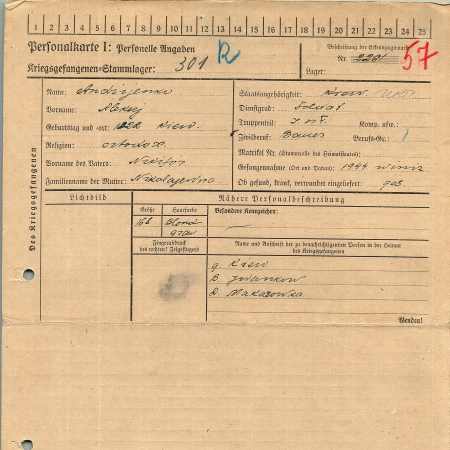 1 2 3 4 5 6 7 8 9 10 11 12 13 14 15 16 17 18 19 20 21 22 23 24 25
Personalkarte I: Personelle Angaben
Kriegsgefangenen-Stammlager: 301 R
Beschriftung der Erkennungsmarke
Nr. 2261 57
Lager:
Des Kriegsgefangenen
Name: Andrijenko
Vorname: Aleksej
Geburtstag und -ort: Kiew.
Religion: ortodox.
Vorname des Vaters: Nikifor
Familienname der Mutter: Nikolajewna
Staatsangehörigkeit:
Dienstgrad: Soldat
Truppenteil: J.R. Komp. usw.:
Zivilberuf: Bauer Berufs-Gr.: 1
Matrikel Nr. (Stammrolle des Heimatstaates):
Gefangennahme (Ort und Datum): 1944
Ob gesund, krank, verwundet eingeliefert: ges.
Lichtbild
Nähere Personalbeschreibung
Größe
Haarfarbe
Besondere Kennzeichen:
168
Fingerabdruck
des rechten! Zeigefingers
Name und Anschrift der zu benachrichtigenden Person in der Heimat
des Kriegsgefangenen
g. Kiew
B. Jwankow
D. Makarowka
Wenden!